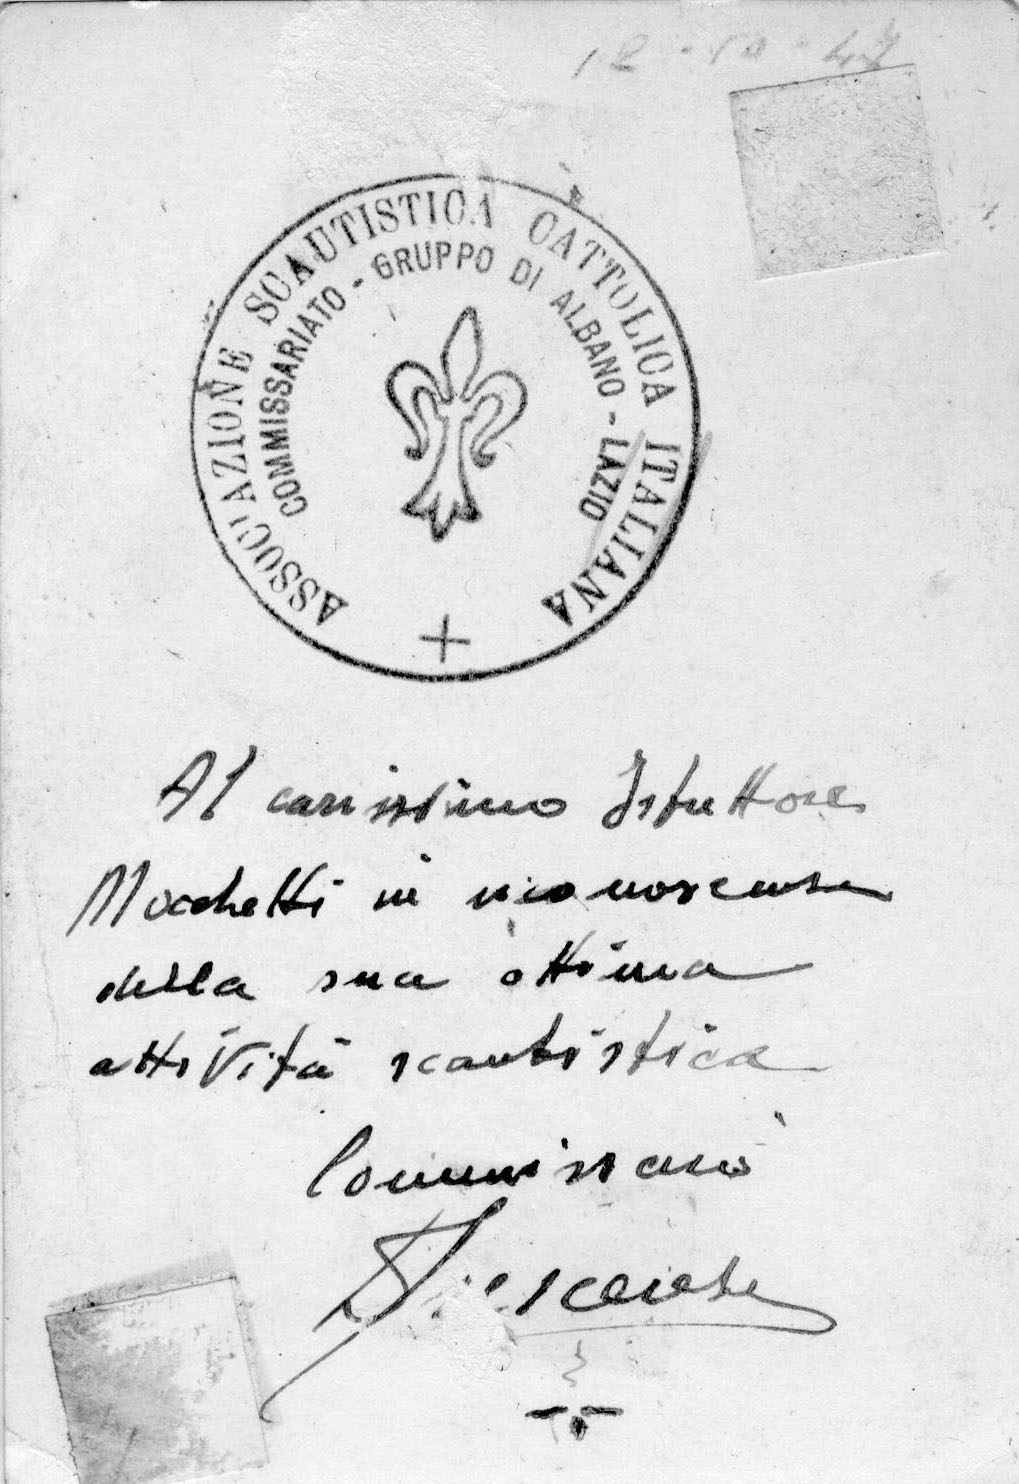 12-10-47
ASSOCIAZIONE SCAUTISTICA CATTOLICA ITALIANA
COMMISSARIATO - GRUPPO DI ALBANO - LAZIO
Al carissimo Istruttore
Mocchetti in riconoscenza
della sua ottima
attività scautistica
Commissario